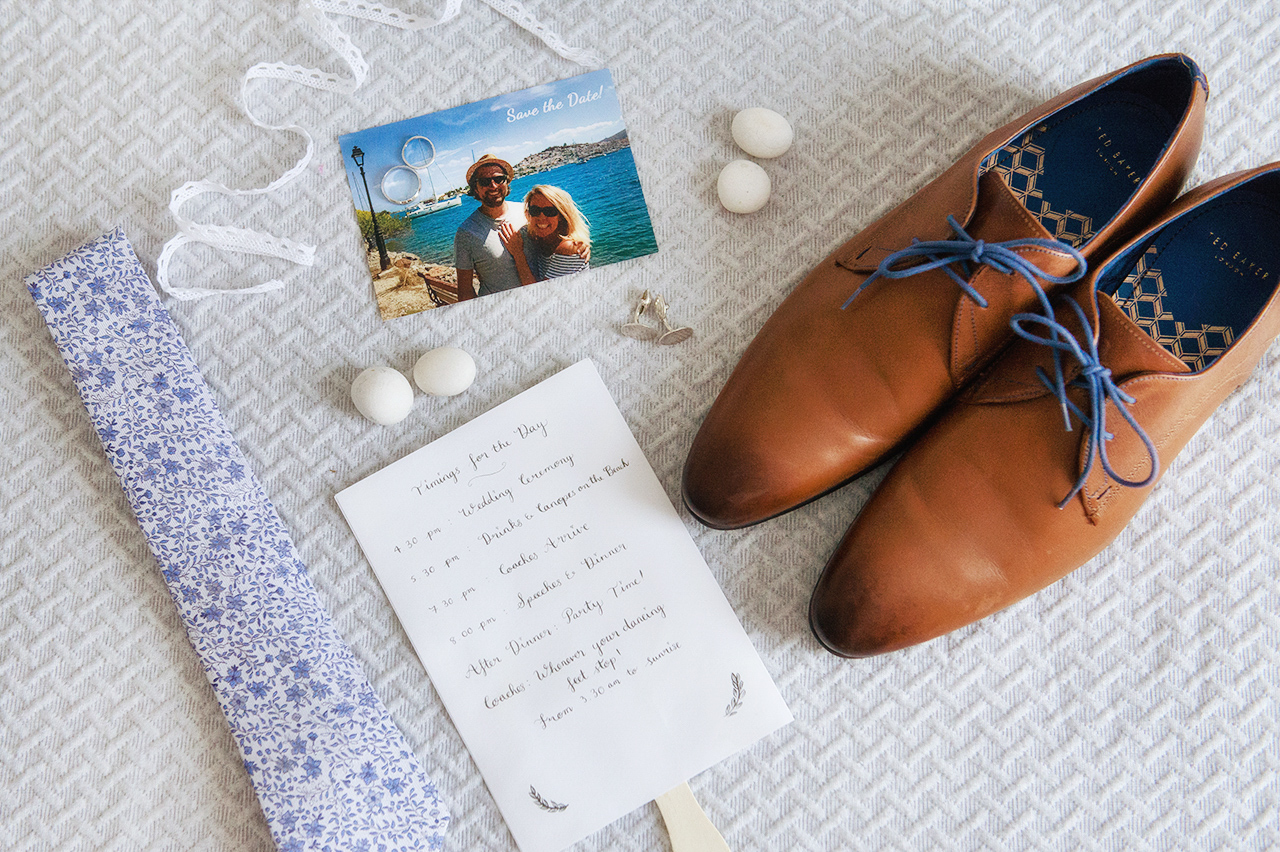 Save the Date!
TED BAKER
LONDON
TED BAKER
LONDON
Timings for the Day
4 30 pm : Wedding Ceremony
5 30 pm : Drinks & Canopes on the Beach
7 30 pm : Coaches Arrive
8 00 pm : Speeches & Dinner
After Dinner : Party Time!
Coaches : Whenever your dancing
feet stop!
From 3 30 am to sunrise